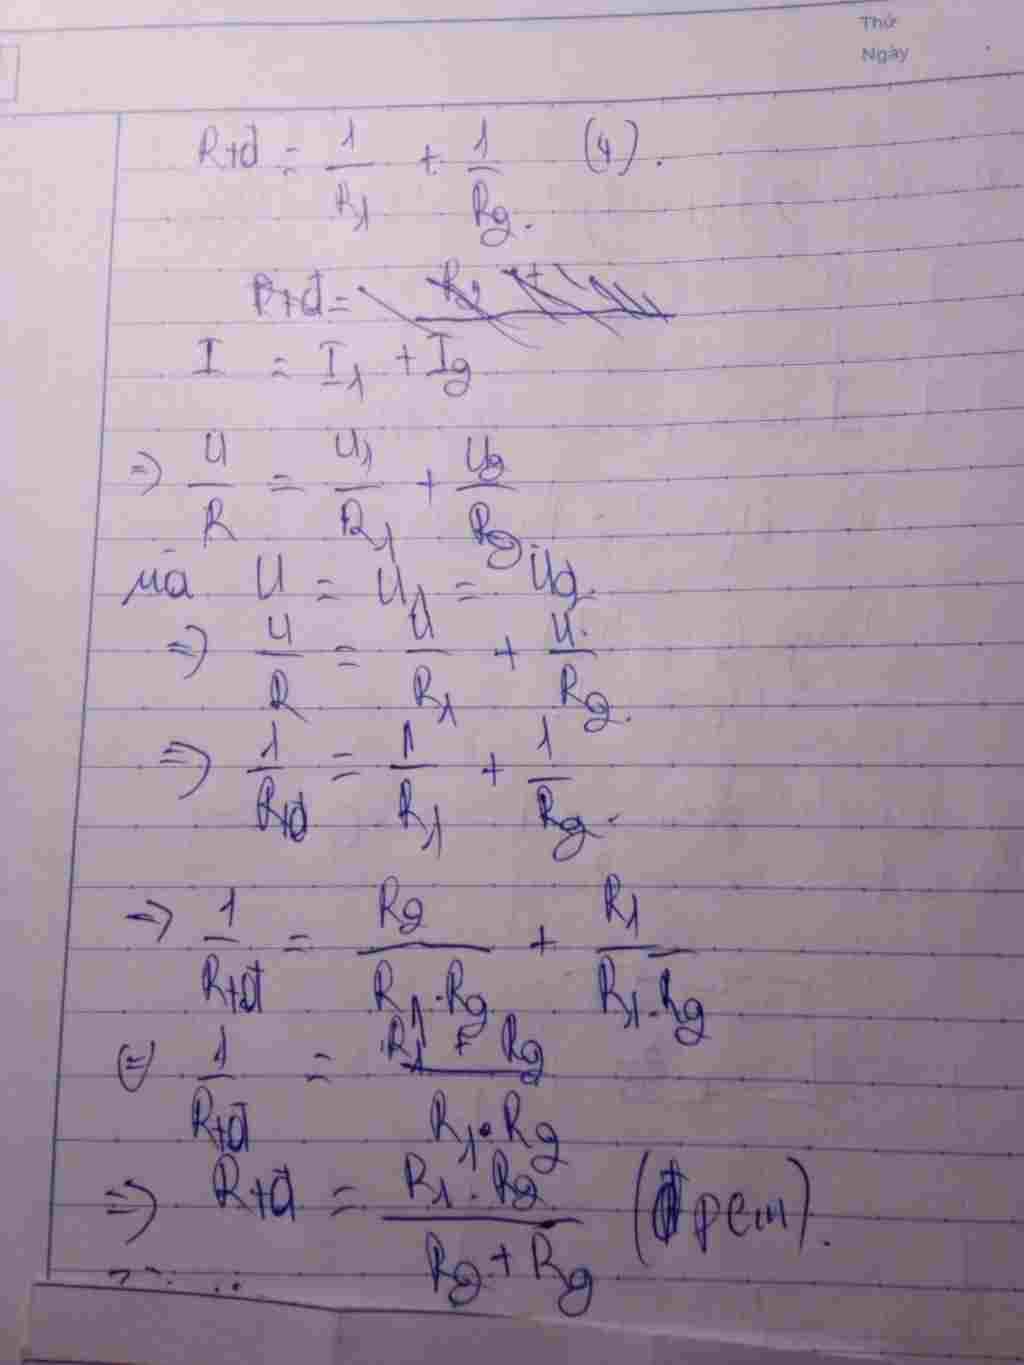 Thứ
Ngày
Rtđ = 1/R1 + 1/R2. (4).
Rtđ =
I = I1 + I2
=> U/R = U1/R1 + U2/R2
mà U = U1 = U2.
=> U/R = U/R1 + U/R2.
=> 1/Rtđ = 1/R1 + 1/R2.
=> 1/Rtđ = R2/R1.R2 + R1/R1.R2
<=> 1/Rtđ = R1 + R2/R1.R2
=> Rtđ = R1.R2/R2 + R2